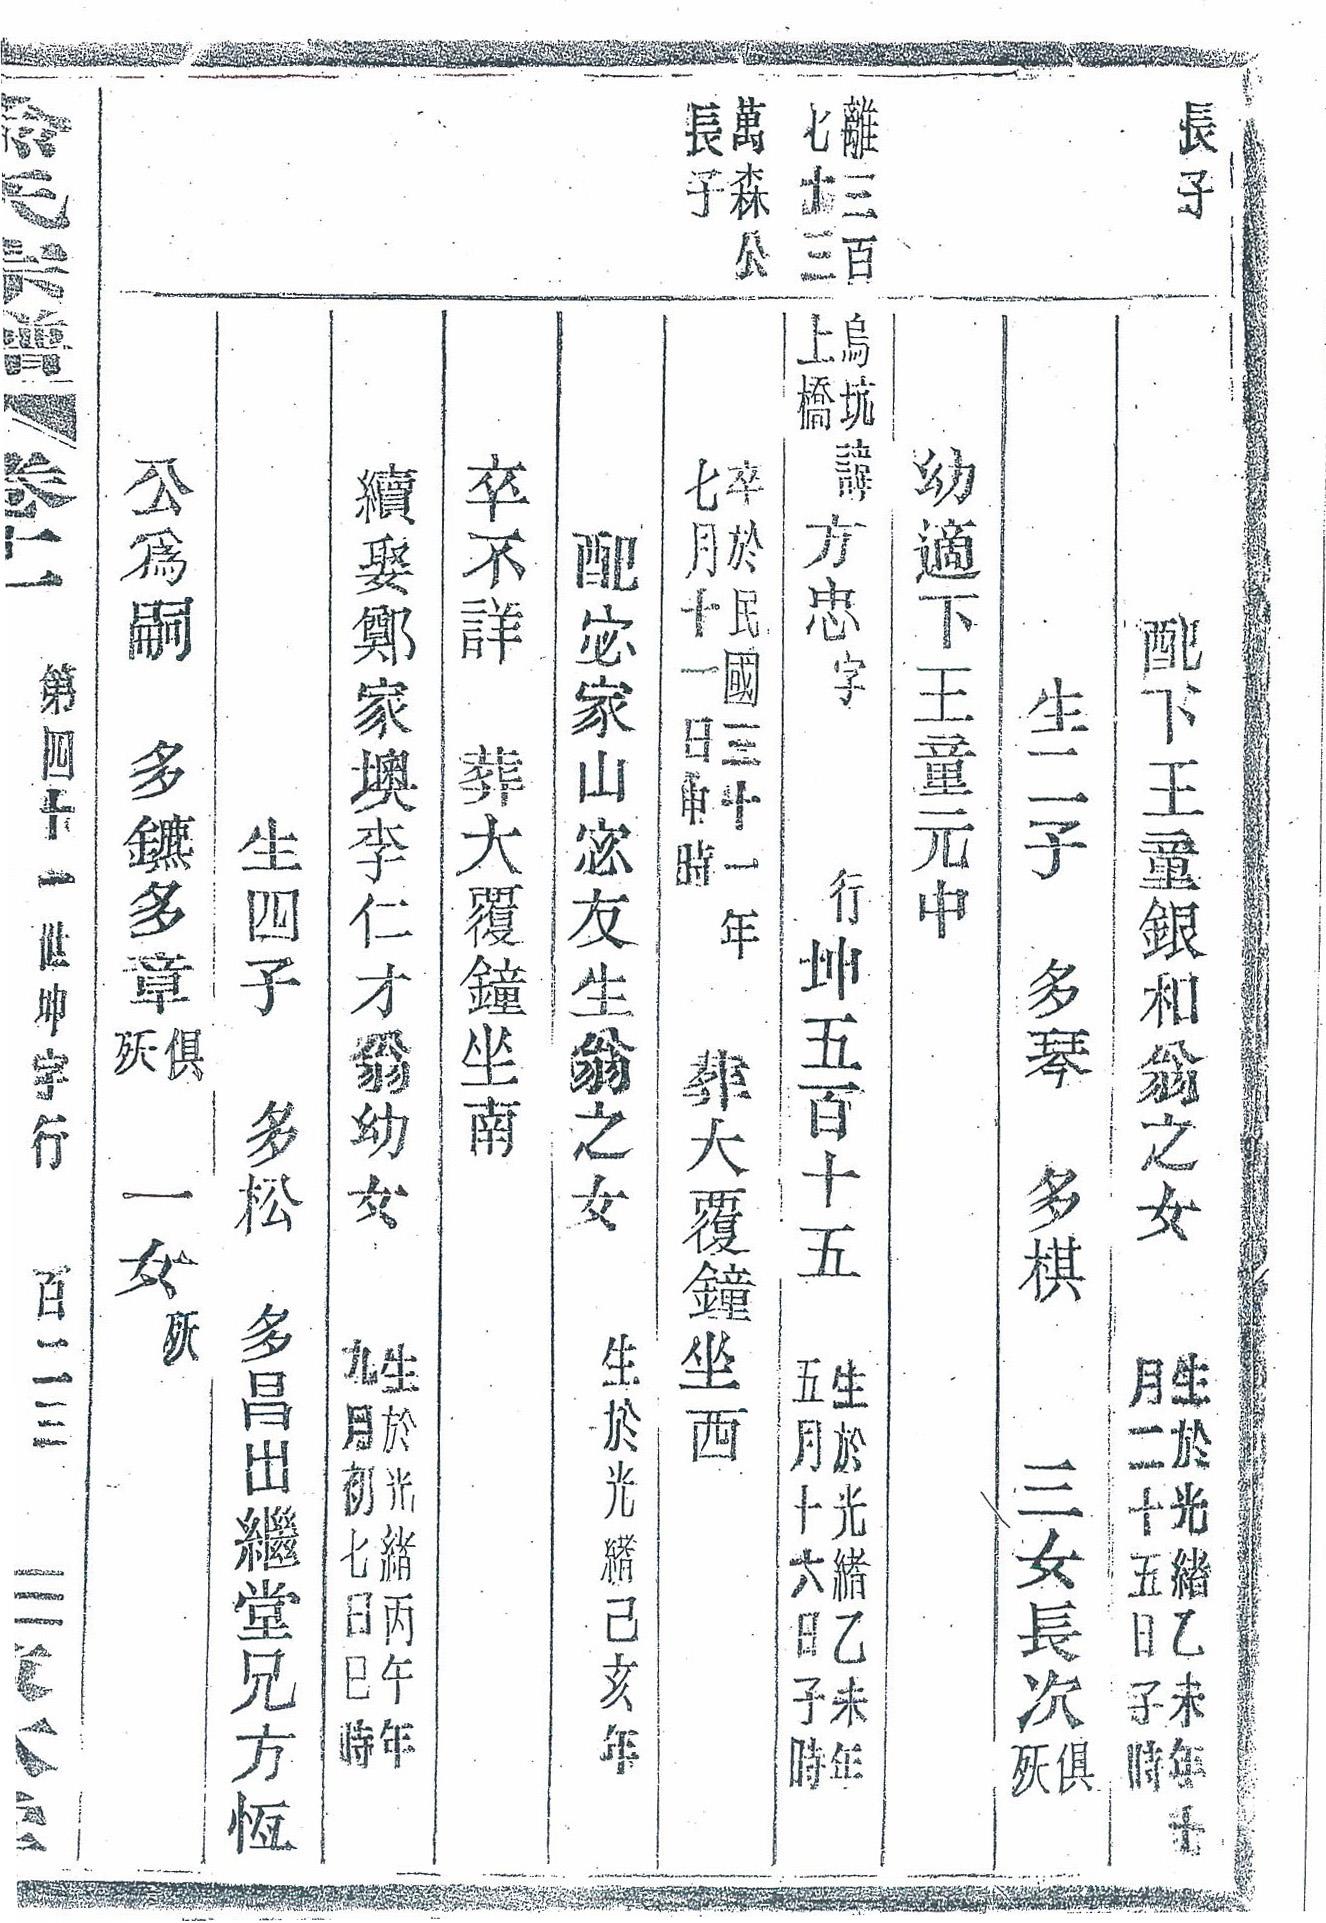 長子
配下王童銀和翁之女
生於光緒乙未年十
月二十五日子時
生二子 多琴 多棋 三女長次
俱
殀
幼適下王童元中
離三百
七十三
烏坑
上橋
諱方忠字 行坤五百十五
生於光緒乙未年
五月十六日子時
萬森公
長子
卒於民國三十一年
七月十一日申時
葬大覆鐘坐西
配宓家山宓友生翁之女 生於光緒己亥年
卒不詳 葬大覆鐘坐南
續娶鄭家墺李仁才翁幼女
生於光緒丙午年
九月初七日巳時
生四子 多松 多昌出繼堂兄方恆
公爲嗣 多鑣多章
俱
殀
一女殀
宗譜 卷十一 第四十一世坤字行 百二三